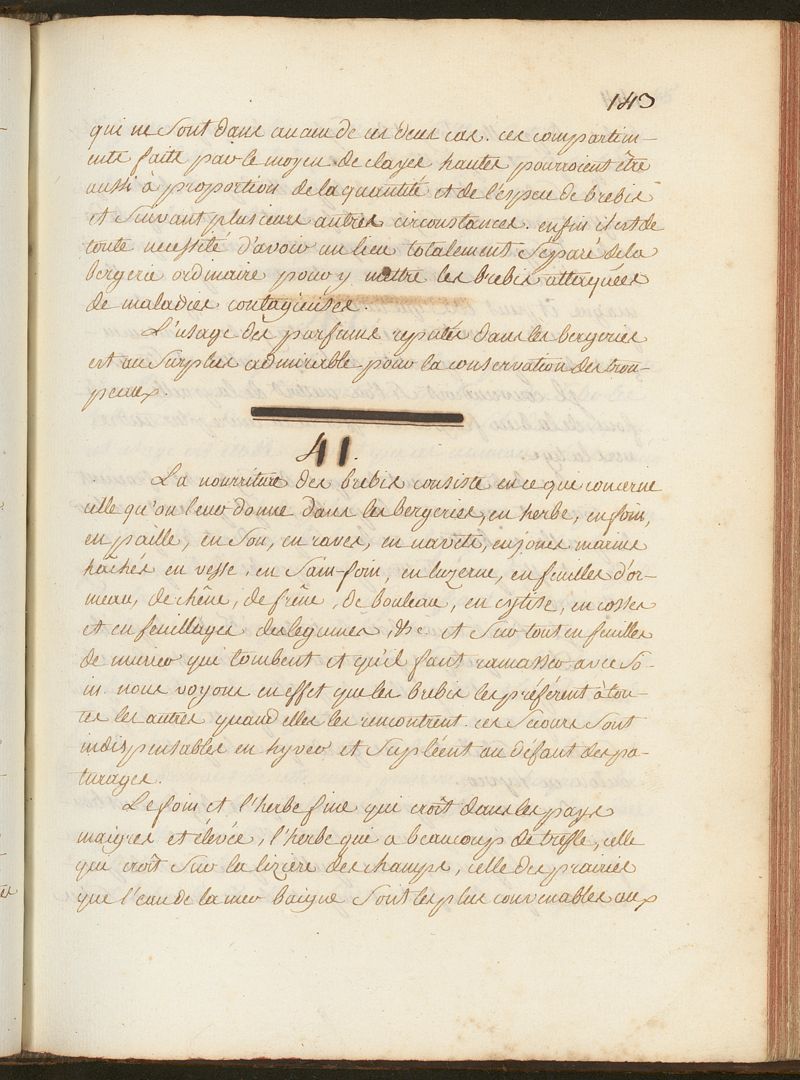 143
qui ne Sont dans aucun de ces deux cas. ces compartim-
ents faits par le moyen de clayes hautes pourroient être
aussi à proportion de la quantité et de l'espece de brebis
et Suivant plusieurs autres circonstances. enfin il est de
toute necessité d'avoir un lieu totalement Séparé de la
bergerie ordinaire pour y mettre les brebis attaquées
de maladies contagieuses.
L'usage des parfums reputés dans les bergeries
est au Surplus admirable pour la conservation des trou-
peaux.
41.
La nourriture des brebis consiste en ce que concerne
celle qu'on leur donne dans les bergeries, en herbe, en foin,
en paille, en Son, en raves, en navets, en joncs marins
hâchés en vesse, en Sain-foin, en luzerne, en feuilles d'or-
meau, de chêne, de frêne, de bouleau, en cytise, en cosses
et en feuillages des legumes, &c et Sur tout en feuilles
de murier qui tombent et qu'il faut ramasser avec So-
in. nous voyons en effet que les brebis les préférent à tou-
tes les autres quand elles les rencontrent. ces Secours Sont
indispensables en hyver et Supléent au défaut des pa-
turages.
Le foin et l'herbe fine qui croît dans les pays
maigres et élevés, l'herbe qui a beaucoup de trefle, celle
qui croît Sur la lizière des champs, celle des prairies
que l'eau de la mer baigne Sont les plus convenables aux